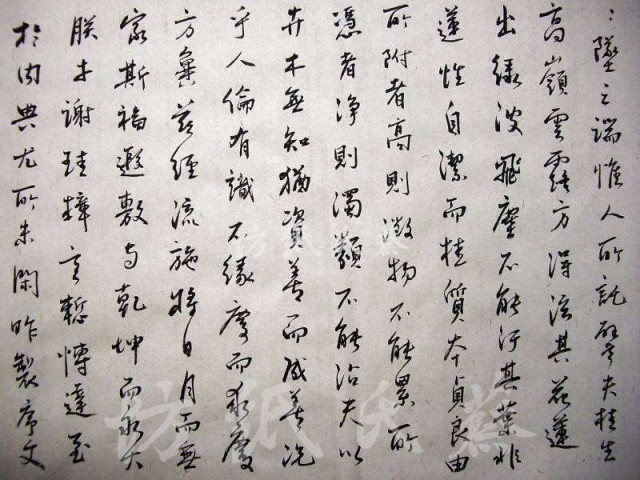 墜之端惟人所託譬夫桂生
高嶺雲露方得泫其花蓮
出綠波飛塵不能汙其葉非
蓮性自潔而桂質本貞良由
所附者高則微物不能累所
憑者淨則濁類不能沾夫以
卉木無知猶資善而成善況
乎人倫有識不緣慶而求慶
方冀茲經流施將日月而無
窮斯福遐敷與乾坤而永大
朕才謝珪璋言慙博達至
於內典尤所未閑昨製序文